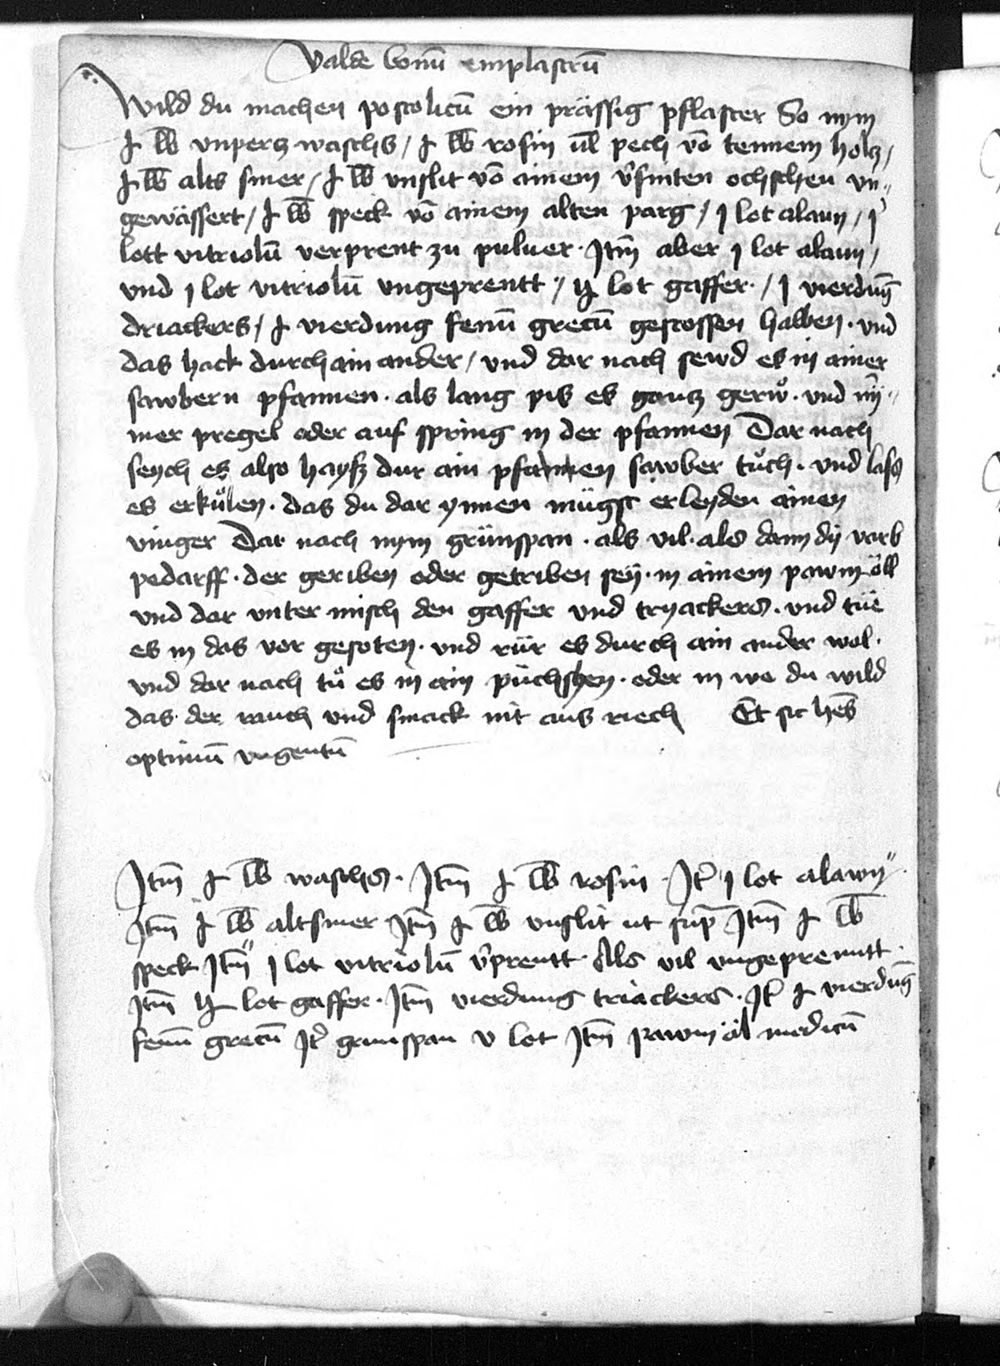 Valde bonū emplastrū
Wild du machen postolicū ein prässig pflaster So nym
j lb unpercz wachs / j lb rosin ul pech vō tennem holcz /
j lb alts smer / j lb unslit vō ainem ochschen un=
gewässert / j lb speck vō ainem alten parg / j lot alaun / j
lott vitriolū verprent zu puluer · Itm aber j lot alaun /
und j lot vitriolū ungeprentt / ij lot gaffer · / j vierdūg
driackers / j vierdung fenū grecū gestossen halben · und
das hack durch ain ander / und dar nach sewd es in ainer
sawbern pfannen · als lang pis es gancz gerů · und nȳ=
mer pregel oder auf spring in der pfannen Dar nach
seych es also hayß dur ain pfannen sawber tůch · und laß
es erkůlen · das du dar ynnen mügst erleyden ainen
vinger Dar nach nym grünspan · als vil · als dann dÿ varb
pedarff · der geriben oder getriben seÿ · in ainem pawm öll
und dar unter misch den gaffer und tryackers · und tüe
es in das vor gesoten · und rür es durch ain ander wol ·
und dar nach tů es in ain püchschen · oder in wo du wild
das der rauch und smack nit aus riech Et sic hēs
optimū ungentū
Itm j lb wachs · Itm j lb rosin · It j lot alawn
Itm j lb altsmer Itm j lb unslit ut sup Itm j lb
speck Itm j lot vitriolū v̄prentt · Als vil ungeprenntt
Itm ij lot gaffer · Itm vierdung triackers · It j vierdūg
fenū grecū It grunspan v lot Itm pawm öl medicū